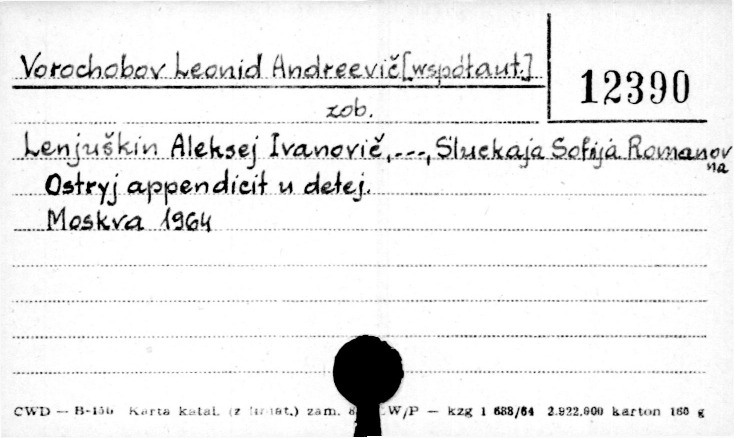 Vorochobov Leonid Andreevič [współaut.]
12390
zob.
Lenjuškin Aleksej Ivanovič, ---, Sluckaja Sofija Romanovna
Ostryj appendicit u detej.
Moskva 1964
CWD — B-156 Karta katal. zam. W/P — kzg 1 688/64 2.922.000 karton 160 g